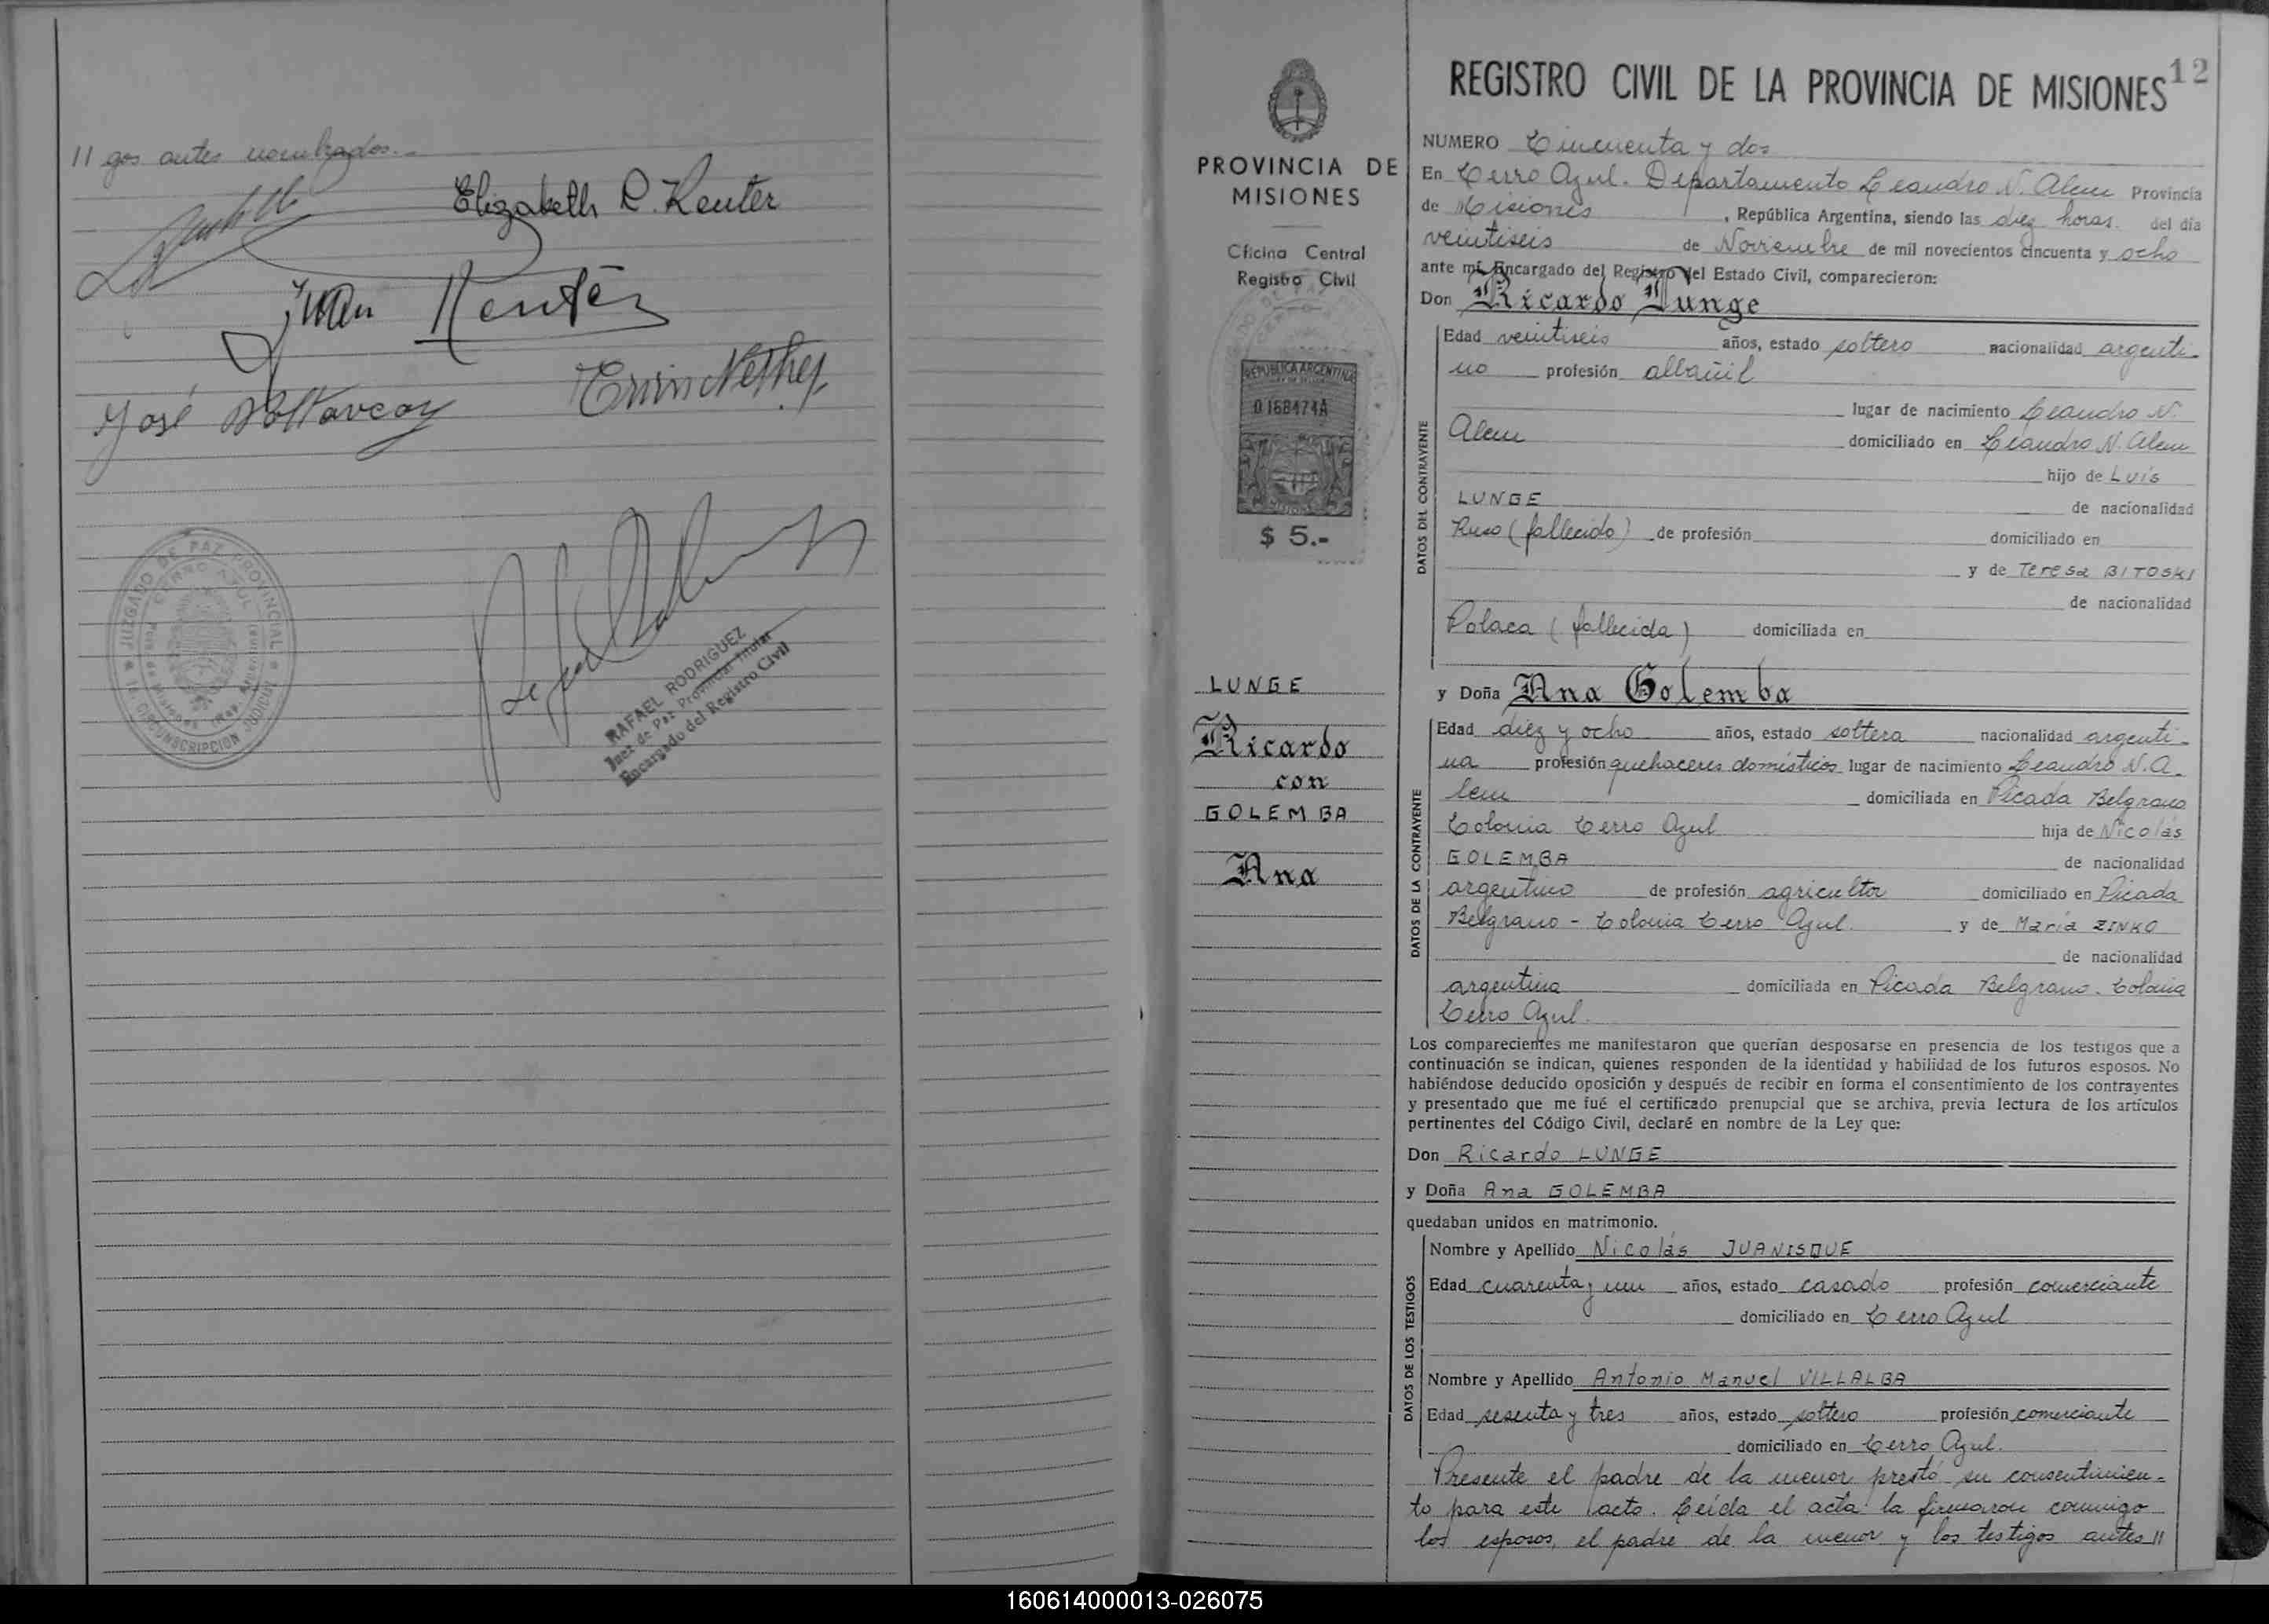 11 gos antes nombrados.-
Elizabeth R. Kenter
Juan Kenter
José
Erwin
JUZGADO DE PAZ PROVINCIAL
CERRO AZUL
1a. CIRCUNSCRIPCION JUDICIAL
RAFAEL RODRIGUEZ
Juez de Paz Provincial Titular
Encargado del Registro Civil
PROVINCIA DE
MISIONES
Oficina Central
Registro Civil
REPUBLICA ARGENTINA
0168474A
MISIONES
$ 5.-
LUNGE
Ricardo
con
GOLEMBA
Ana
REGISTRO CIVIL DE LA PROVINCIA DE MISIONES 12
NUMERO Cincuenta y dos
En Cerro Azul. Departamento Leandro N. Alem Provincia
de Misiones, República Argentina, siendo las diez horas del día
veintiseis de Noviembre de mil novecientos cincuenta y ocho
ante mí, Encargado del Registro del Estado Civil, comparecieron:
Don Ricardo Lunge
DATOS DEL CONTRAYENTE
Edad veintiseis años, estado soltero nacionalidad argenti-
no profesión albañil
lugar de nacimiento Leandro N.
Alem domiciliado en Leandro N. Alem
hijo de Luís
LUNGE de nacionalidad
Ruso (fallecido) de profesión domiciliado en
y de Teresa BITOSKI
de nacionalidad
Polaca (fallecida) domiciliada en
y Doña Ana Golemba
DATOS DE LA CONTRAYENTE
Edad diez y ocho años, estado soltera nacionalidad argenti-
na profesión quehaceres domésticos lugar de nacimiento Leandro N. A-
lem domiciliada en Picada Belgrano
Colonia Cerro Azul hija de Nicolás
GOLEMBA de nacionalidad
argentino de profesión agricultor domiciliado en Picada
Belgrano - Colonia Cerro Azul. y de María ZINKO
de nacionalidad
argentina domiciliada en Picada Belgrano. Colonia
Cerro Azul.
Los comparecientes me manifestaron que querían desposarse en presencia de los testigos que a
continuación se indican, quienes responden de la identidad y habilidad de los futuros esposos. No
habiéndose deducido oposición y después de recibir en forma el consentimiento de los contrayentes
y presentado que me fué el certificado prenupcial que se archiva, previa lectura de los artículos
pertinentes del Código Civil, declaré en nombre de la Ley que:
Don Ricardo LUNGE
y Doña Ana GOLEMBA
quedaban unidos en matrimonio.
DATOS DE LOS TESTIGOS
Nombre y Apellido Nicolás JUANISQUE
Edad cuarenta y un años, estado casado profesión comerciante
domiciliado en Cerro Azul
Nombre y Apellido Antonio Manuel VILLALBA
Edad sesenta y tres años, estado soltero profesión comerciante
domiciliado en Cerro Azul.
Presente el padre de la menor prestó su consentimien-
to para este acto. Leída el acta la firmaron conmigo
los esposos, el padre de la menor y los testigos antes 11
160614000013-026075